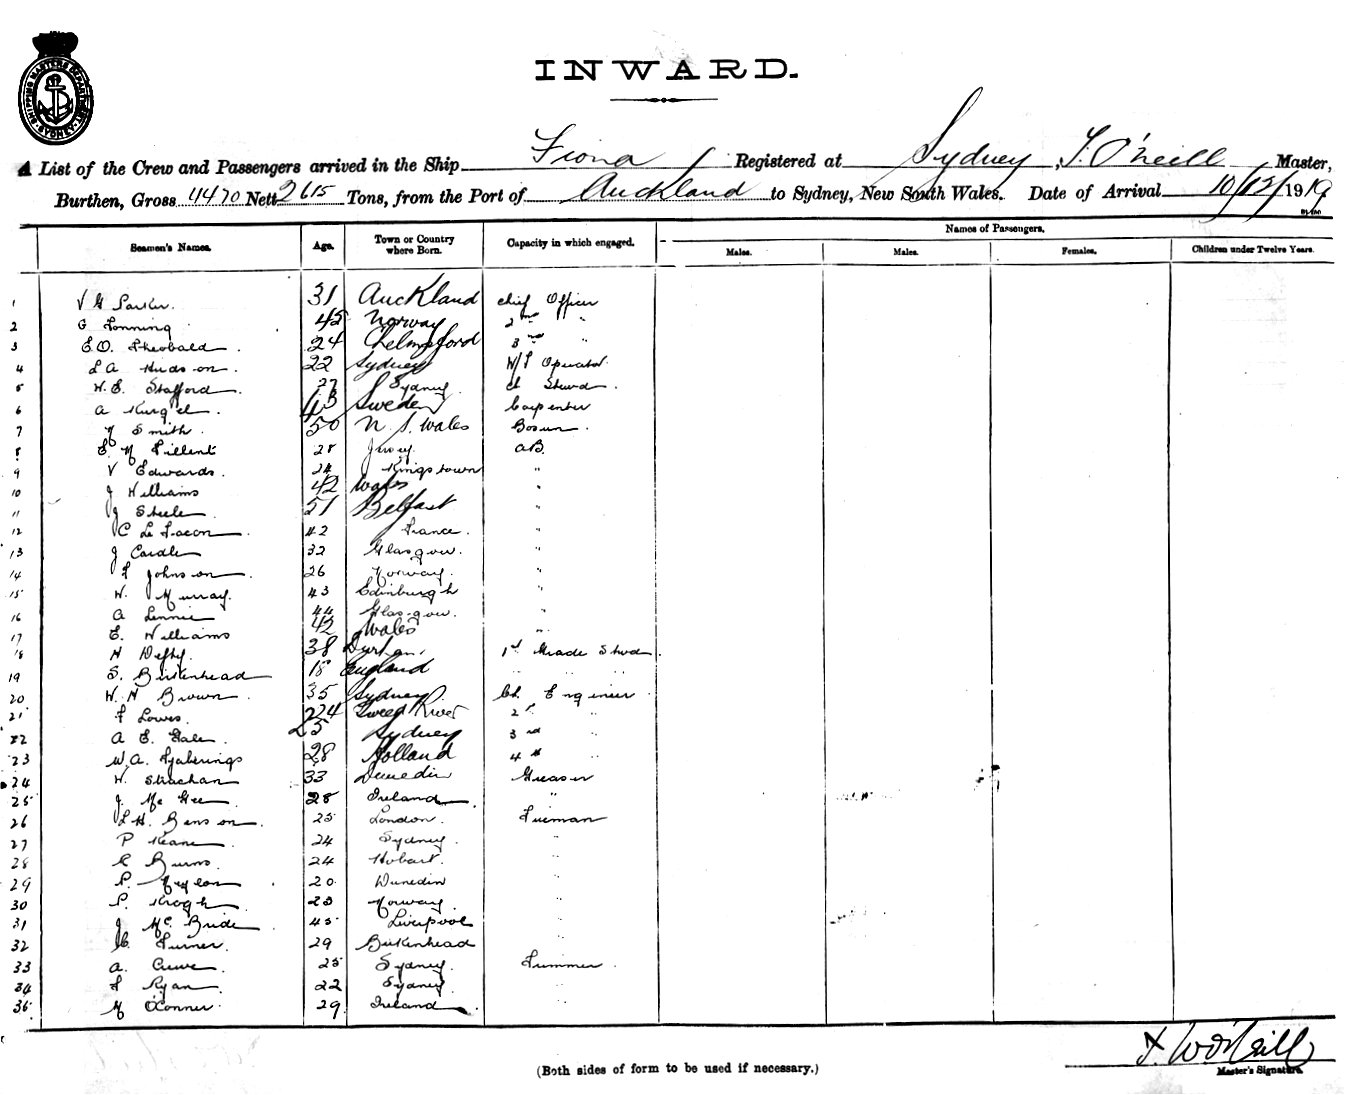 SHIPPING MASTERS DEPARTMENT SYDNEY
INWARD.
A List of the Crew and Passengers arrived in the Ship Fiona Registered at Sydney, T. O'Neill Master,
Burthen, Gross 4470 Nett 2615 Tons, from the Port of Auckland to Sydney, New South Wales. Date of Arrival 10/12/1919
Seamen's Names. Age. Town or Country where Born. Capacity in which engaged. Names of Passengers.
Males. Males. Females. Children under Twelve Years.
1 V G Parker. 31 Auckland chief Officer
2 G Tonning 45 Norway 2nd "
3 E.O. Theobald. 24 Chelmsford 3rd "
4 L A Hudson. 22 Sydney W/T Operator.
5 W. E. Stafford. 27 Sydney Ch Stewd.
6 A 43 Sweden Carpenter
7 Smith. 50 N. S. Wales Bosun.
8 E. M Tillent 28 Jersey AB.
9 V Edwards. 24 Kingstown "
10 J Williams 42 Wales "
11 J Steele 51 Belfast "
12 C Le Facon. 42 France. "
13 J Cardle 32 Glasgow. "
14 F Johnson. 26 Norway. "
15 W. Murray. 43 Edinburgh "
16 A Lennie 44 Glasgow. "
17 E. Williams 42 Wales "
18 H Defty. 38 Durham, 1st Grade Stwd.
19 S. Birkenhead 18 England " " "
20 W. H Brown. 35 Sydney Ch. Engineer
21 F Lowes. 24 Tweed River 2nd "
22 A E. Gale. 25 Sydney 3rd "
23 W.A. 28 Holland 4th "
24 W. Strachan 33 Dunedin Greaser
25 J. Mc Gee. 28 Ireland "
26 L.H. Benson. 25 London. Fireman
27 P Keane 24 Sydney. "
28 C Burns. 24 Hobart. "
29 P. 20 Dunedin "
30 P. Krogh. 23 Norway. "
31 J Mc Bride 45 Liverpool "
32 C. Turner. 29 Birkenhead "
33 A. Crewe. 25 Sydney. Trimmer.
34 F Ryan. 22 Sydney "
35 M O'Conner 29 Ireland. "
(Both sides of form to be used if necessary.)
Master's Signature.